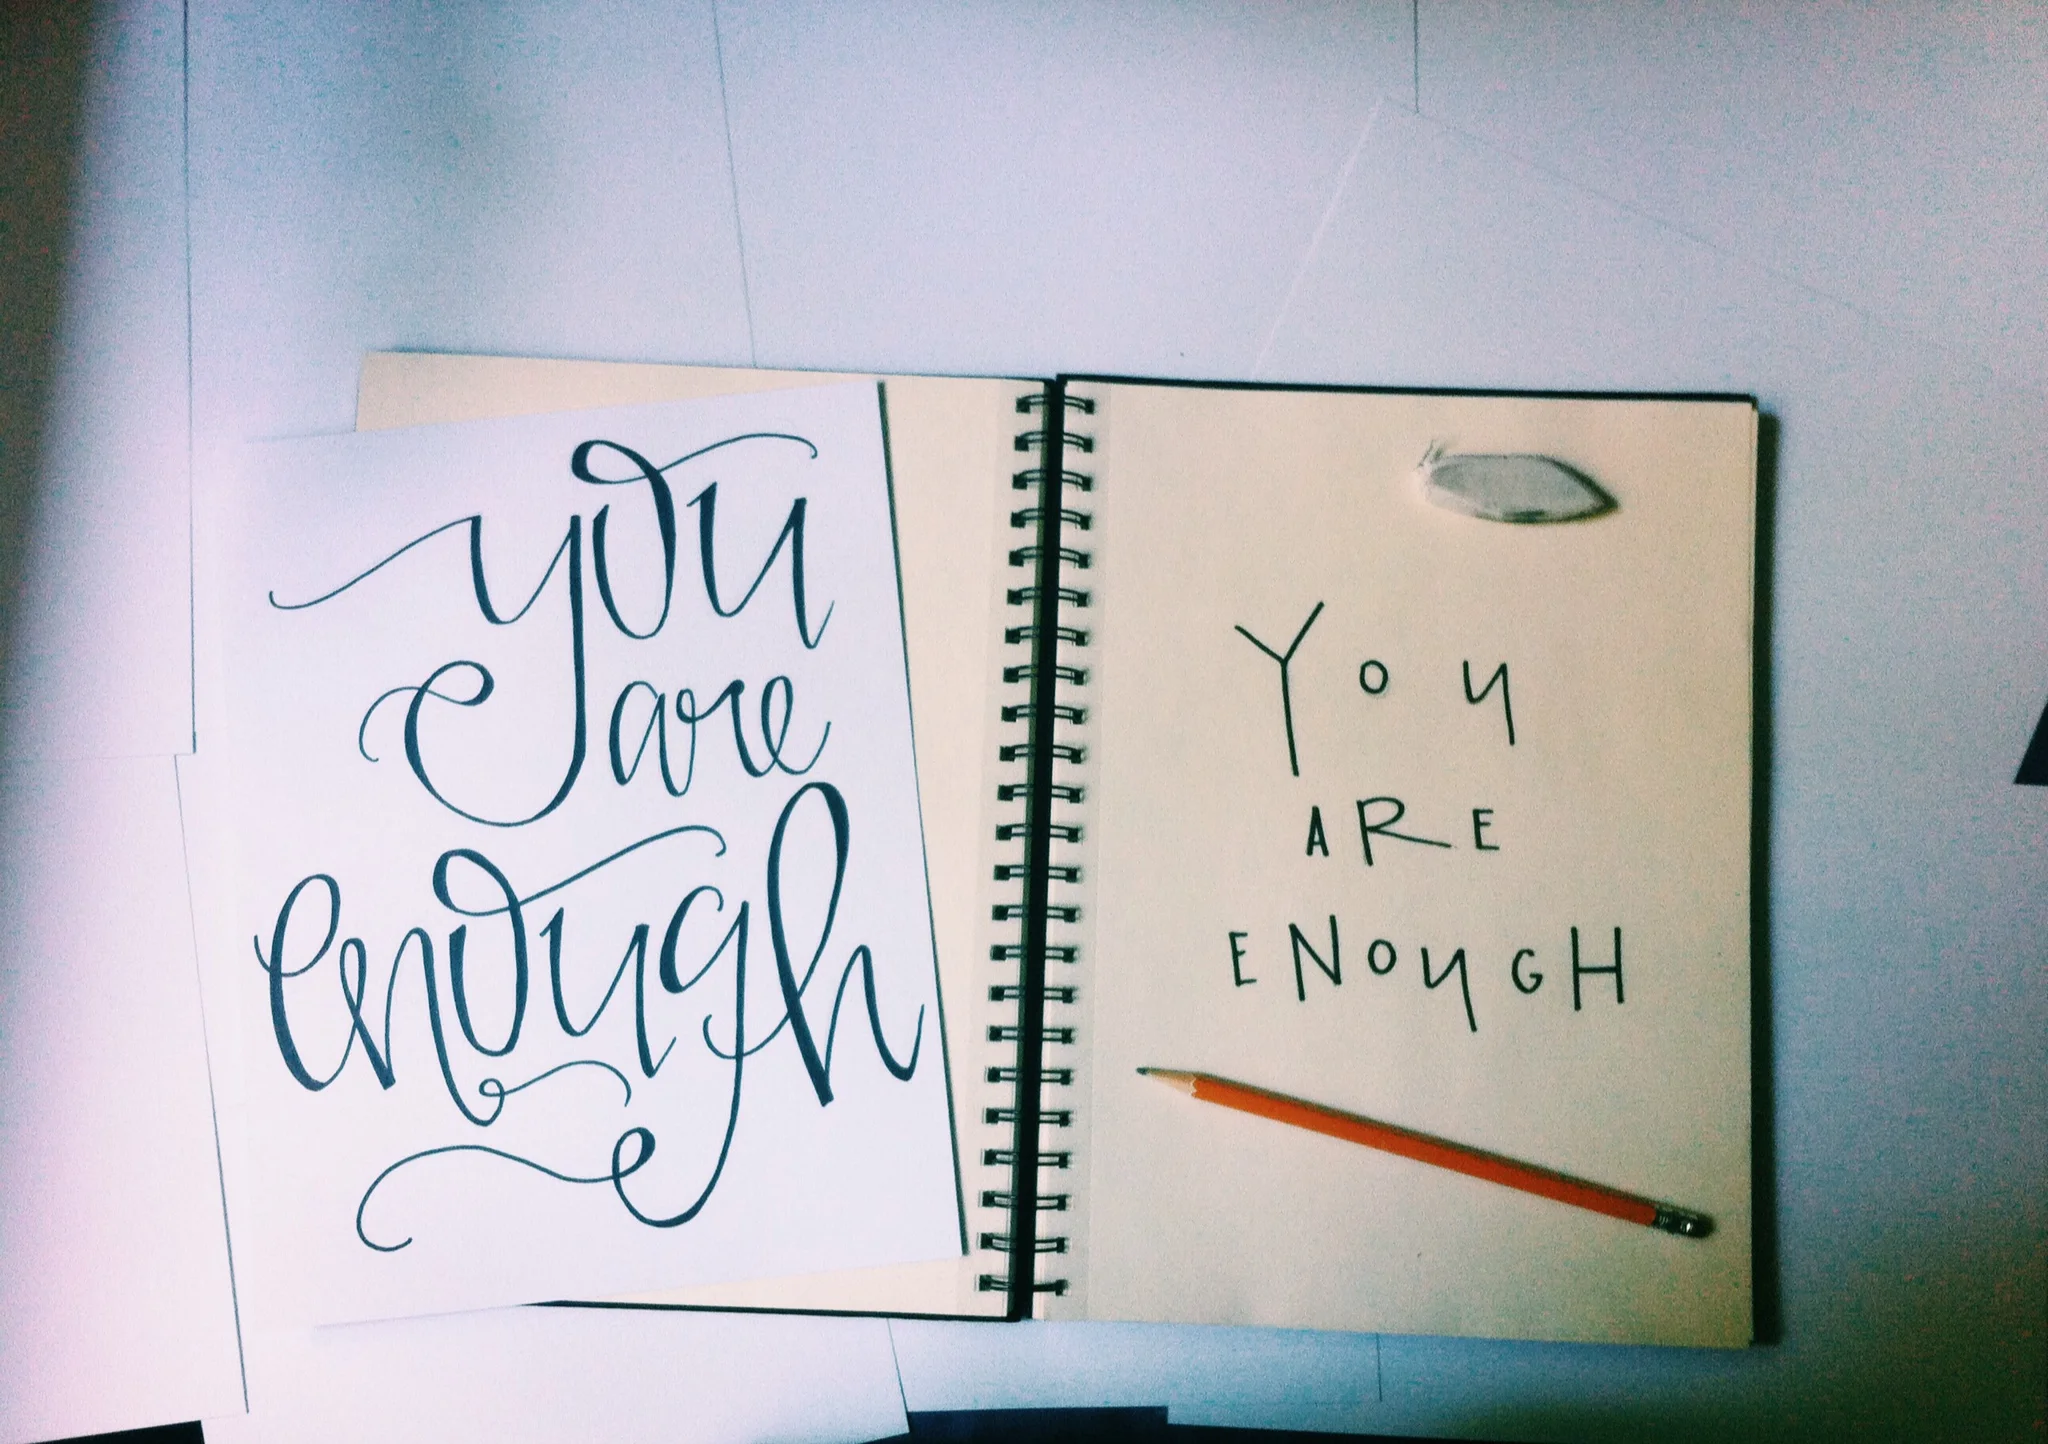 you
are
enough
YOU
ARE
ENOUGH